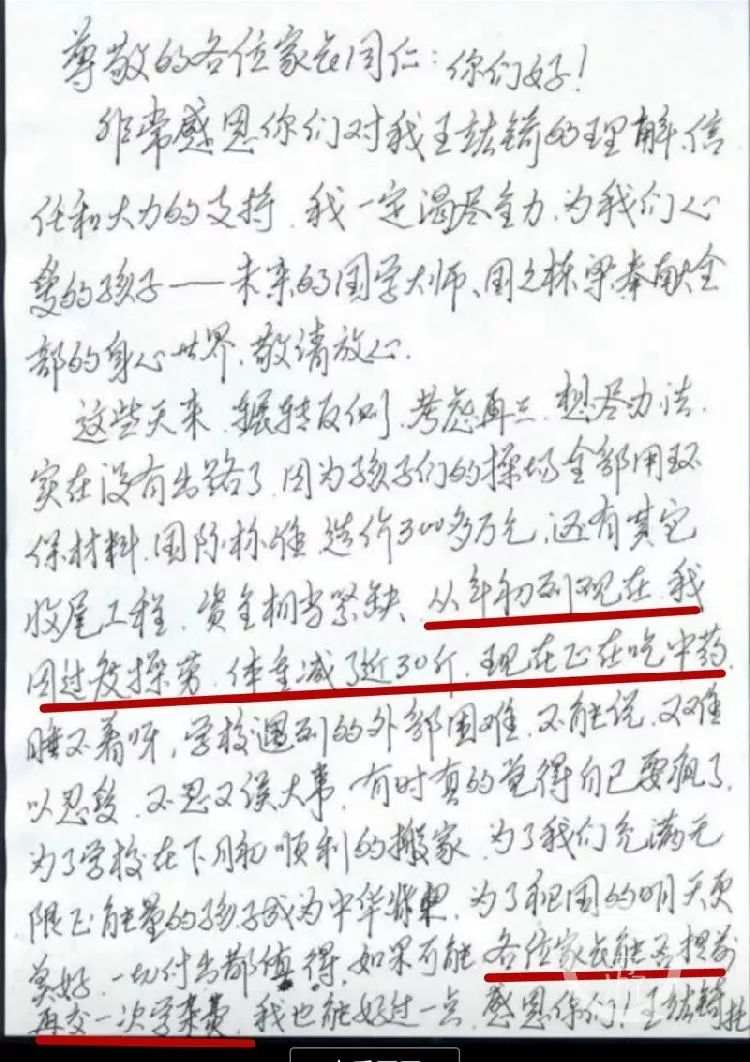 尊敬的各位家长同仁：你们好！
非常感恩你们对我王喆锜的理解、信
任和大力的支持，我一定竭尽全力，为我们心
爱的孩子——未来的国学大师、国之栋梁奉献全
部的身心世界，敬请放心．
这些天来，辗转反侧，考虑再三，想尽办法，
实在没有出路了，因为孩子们的操场全部用环
保材料，国际标准，造价300多万元，还有其它
收尾工程，资金相当紧缺、从年初到现在，我
因过度操劳，体重减了近30斤，现在正在吃中药，
睡不着呀，学校遇到的外部困难，不能说，又难
以忍受，不忍又误大事，有时真的觉得自己要疯了，
为了学校在下月初顺利的搬家，为了我们充满无
限正能量的孩子成为中华紫，为了祖国的明天更
美好，一切付出都值得，如果可能各位家长能否提前
再交一次学杂费，我也能好过一点，感恩你们！王喆锜